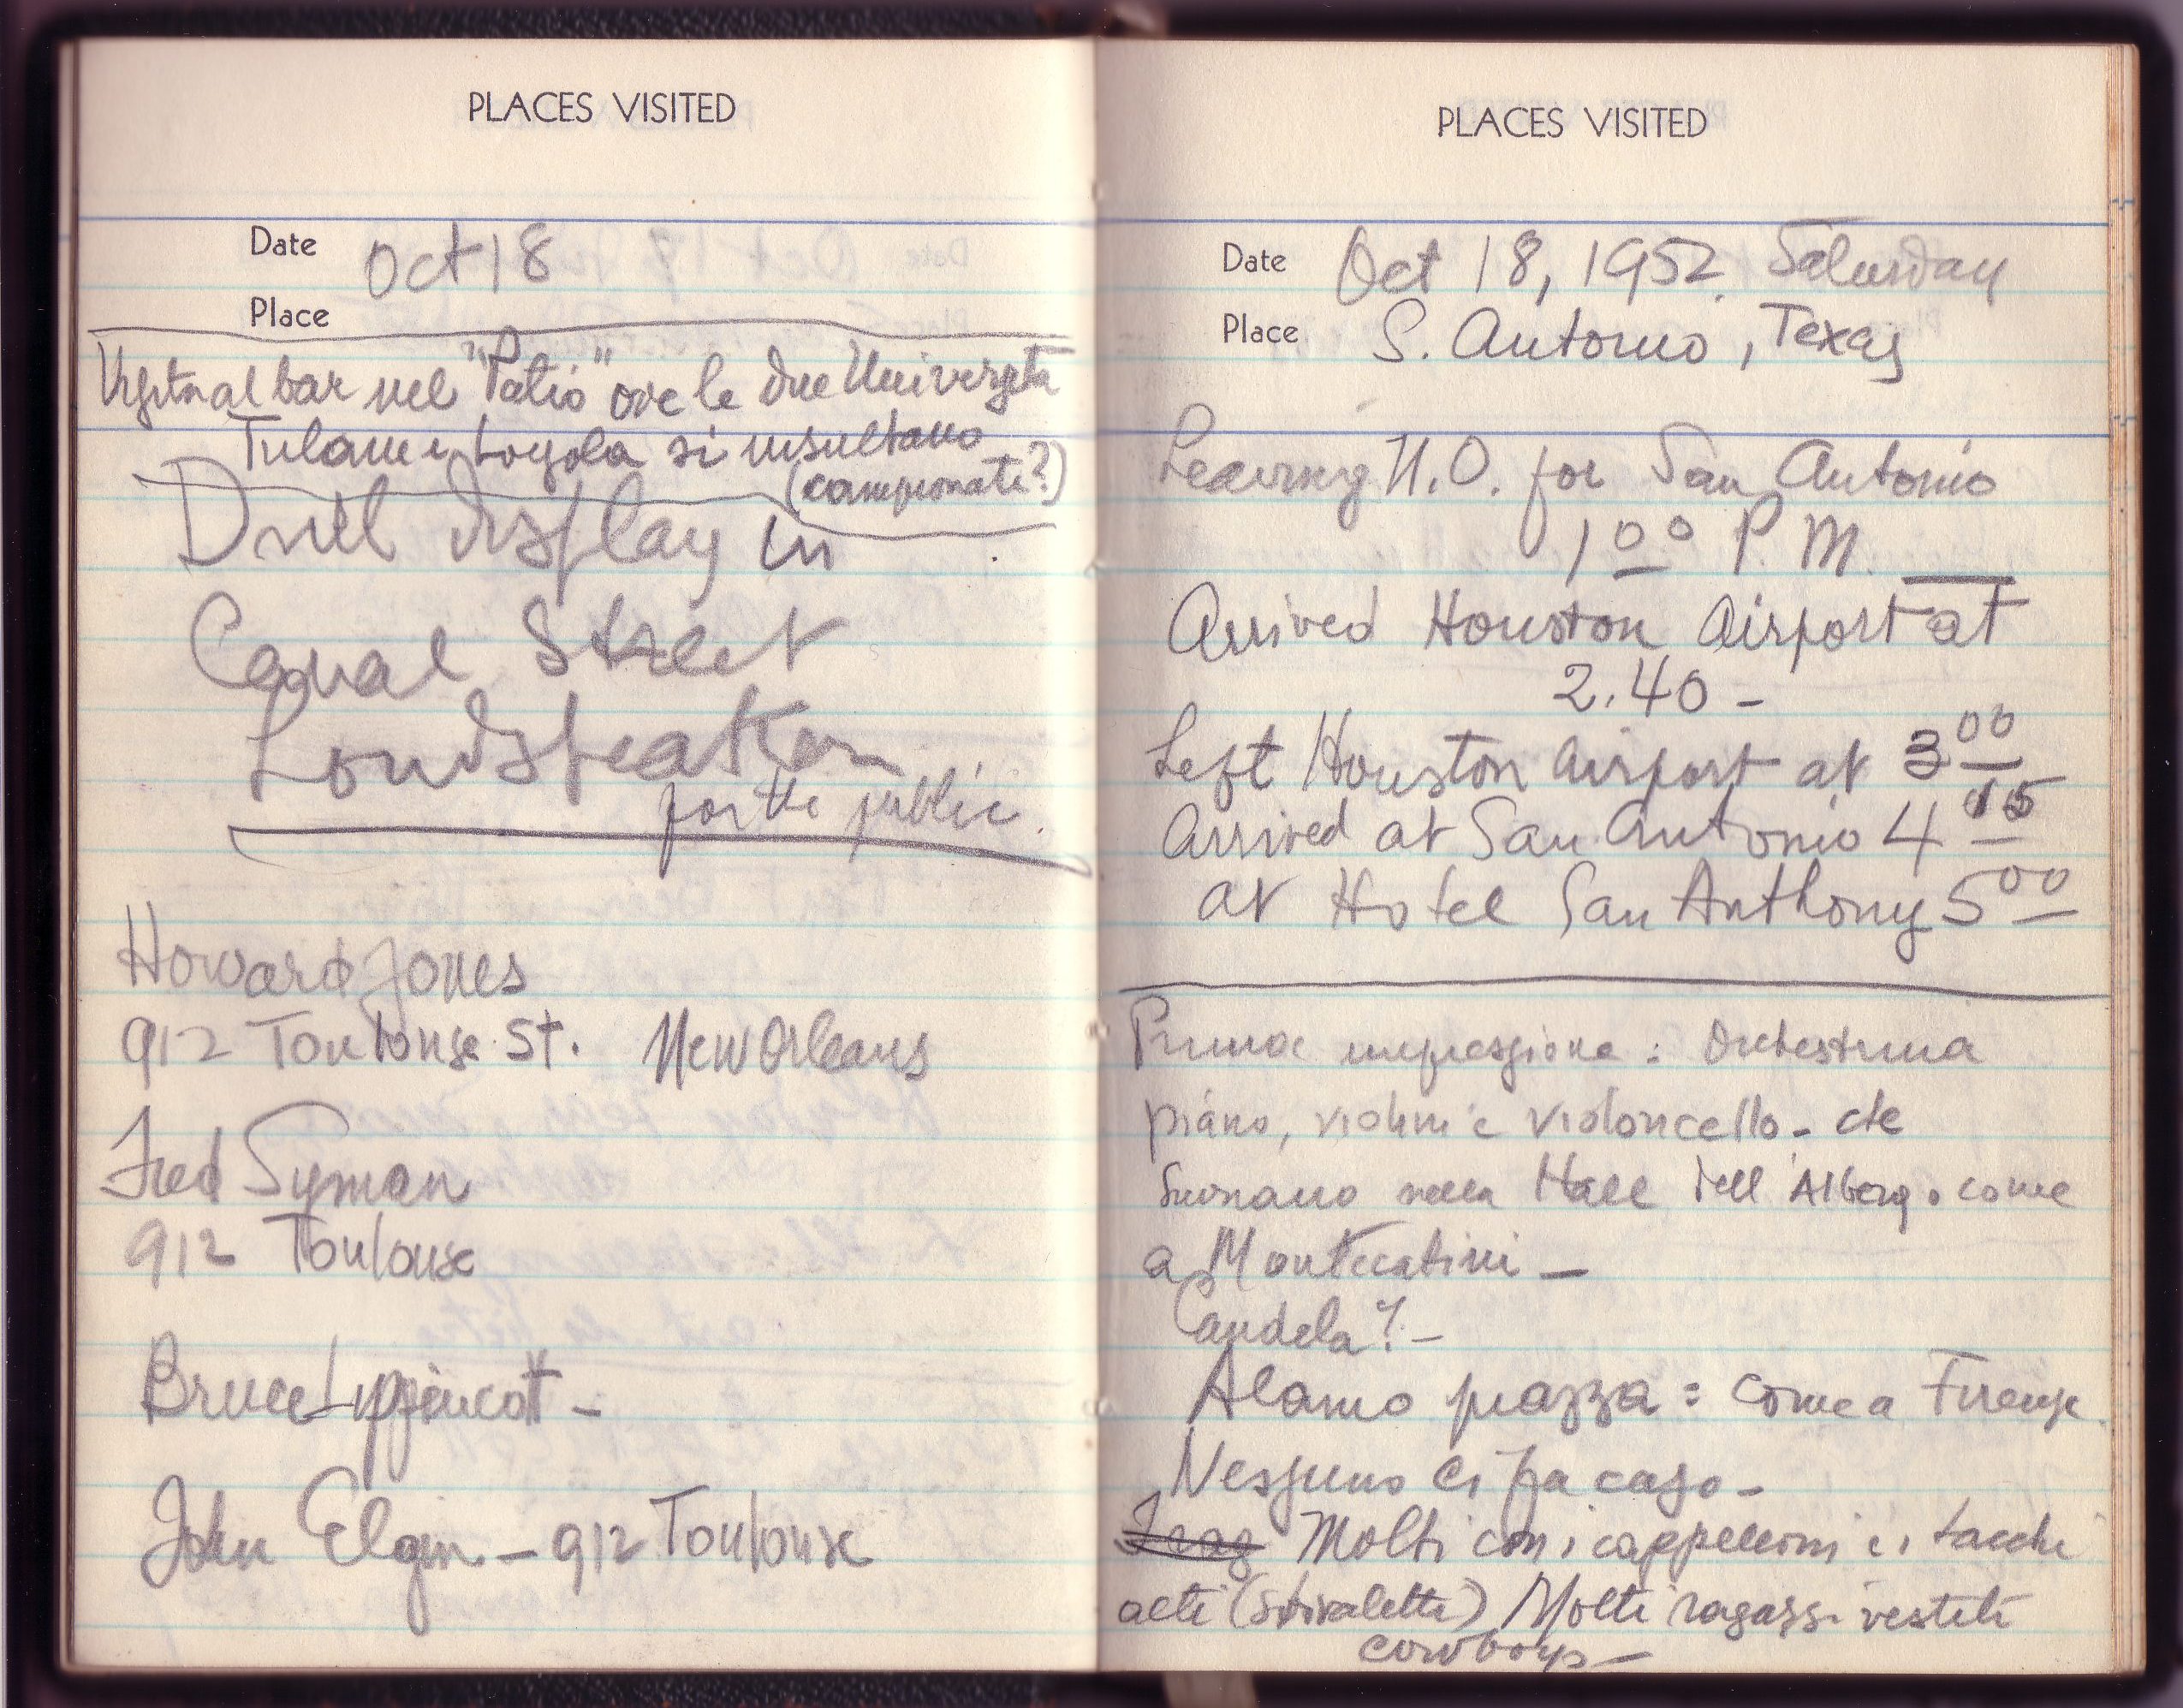 PLACES VISITED
Date Oct 18
Place
Visita al bar nel "Patio" ove le due Università
Tulane e Loyola si insultano
(campionati?)
Drill display in
Canal Street
Loudspeaker
for the public.
Howard Jones
912 Toulouse St. New Orleans
Fred Syman
912 Toulouse
Bruce Lippincot -
John Elgin - 912 Toulouse
PLACES VISITED
Date Oct 18, 1952. Saturday
Place S. Antonio, Texas
Leaving N.O. for San Antonio
1 00 P.M.
Arrived Houston Airport at
2.40 -
Left Houston Airport at 3 00
Arrived at San Antonio 4 15
at Hotel San Anthony 5 00
Prima impressione: Orchestrina
piano, violini e violoncello - che
suonano nella Hall dell'Albergo come
a Montecatini -
Candela? -
Alamo piazza: come a Firenze.
Nessuno ci fa caso -
Molti con i cappelloni e i tacchi
alti (stivaletti) Molti ragazzi vestiti
cowboys -